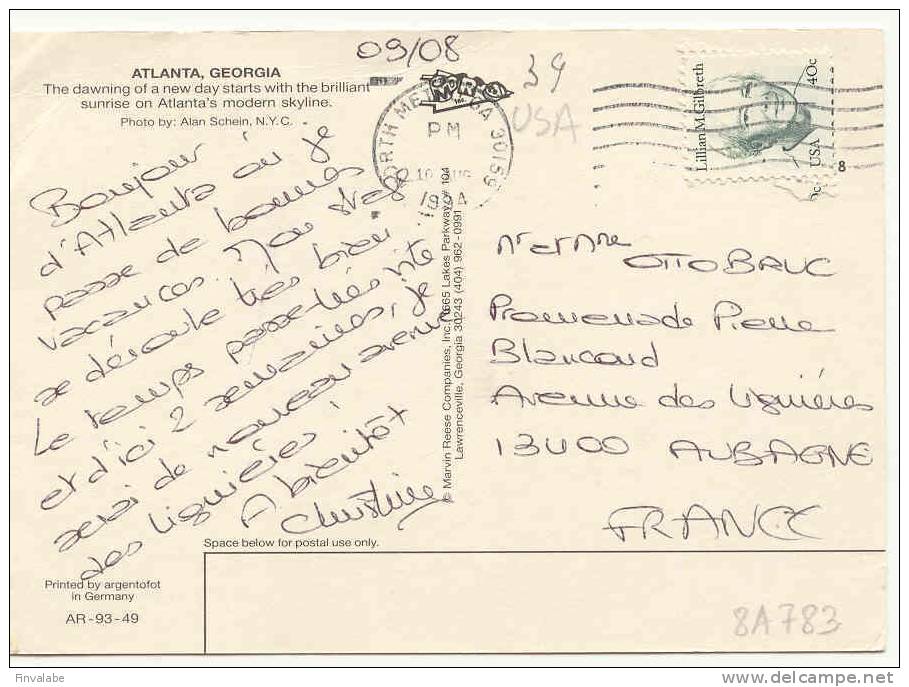 09/08
ATLANTA, GEORGIA
The dawning of a new day starts with the brilliant
sunrise on Atlanta's modern skyline.
Photo by: Alan Schein, N.Y.C.
Bonjour
d'Atlanta où je
passe de bonnes
vacances. Mon stage
se déroule très bien
Le temps passe très vite
et d'ici 2 semaines, je
serai de nouveau avenue
des Ligniéres !
A bientôt
Christine
Printed by argentofot
in Germany
AR-93-49
Space below for postal use only.
© Marvin Reese Companies, Inc. 1665 Lakes Parkway # 104
Lawrenceville, Georgia 30243 (404) 962-0991
NORTH METRO GA 30159
PM
1994
39
USA
Lillian M. Gilbreth
USA 40c
8
Mr et Mme
OTTOBRUC
Promenade Pierre
Blancard
Avenue des Ligniéres
13400 AUBAGNE
FRANCE
8A783
Finvalabe
www.delcampe.net